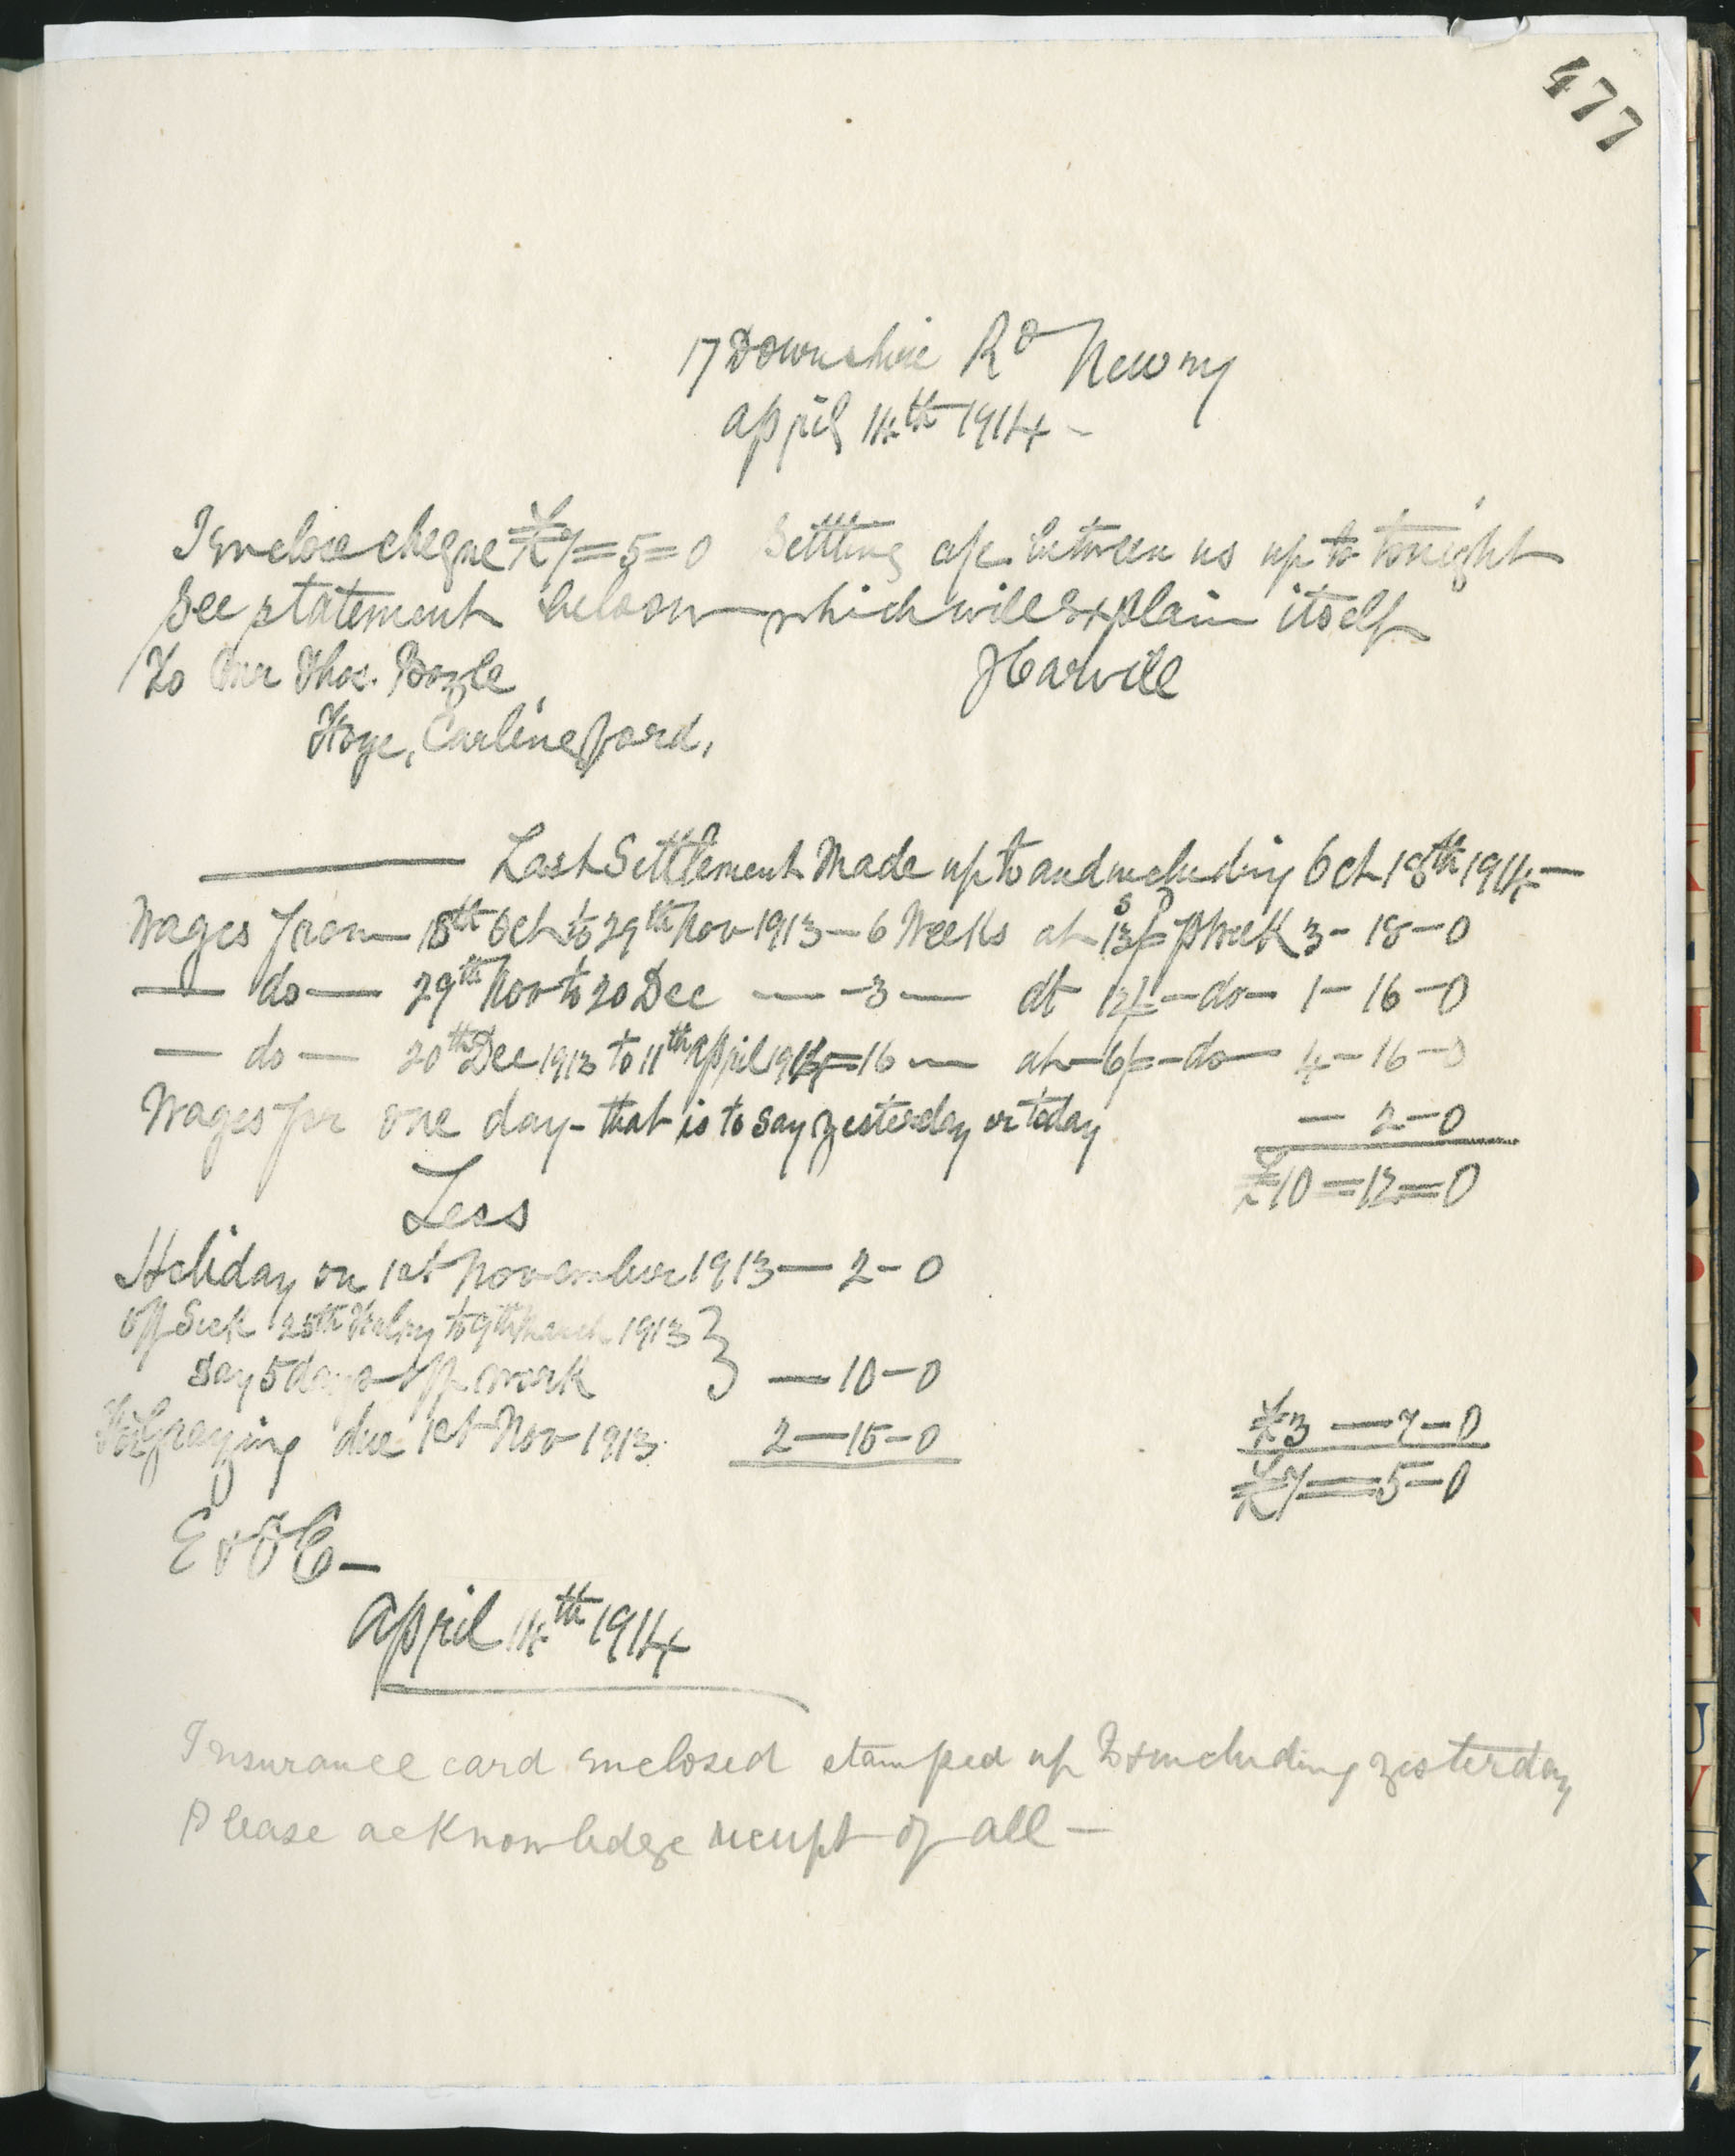 477
17 Downshire Rd Newry
April 14th 1914 -
I enclose cheque £7=5=0 Settling a/c between us up to tonight
See statement below which will explain itself
To Thos. Boyle
JCarvill
Carlingford,
Last Settlement Made up to and including Oct 18th 1914 —
Wages from 18th Oct to 29th Nov 1913 — 6 Weeks at 13/= P Week 3 - 18 - 0
— do — 29th Nov to 20 Dec — - 3 — at 12/= - do - 1 - 16 - 0
— do — 20th Dec 1913 to 11th April 1914 = 16 — at 6/= - do - 4 - 16 - 0
Wages for one day - that is to say yesterday or today — 2 - 0
£10 = 12 = 0
Less
Holiday on 1st November 1913 — 2 - 0
Off Sick 25th Febry to 9th March 1913 }
say 5 days off work — 10 - 0
For Grazing due 1st Nov 1913. 2 — 15 - 0
£3 — 7 - 0
£7 = 5 - 0
E & O E —
April 14th 1914
Insurance card enclosed stamped up to & including yesterday
Please acknowledge receipt of all —